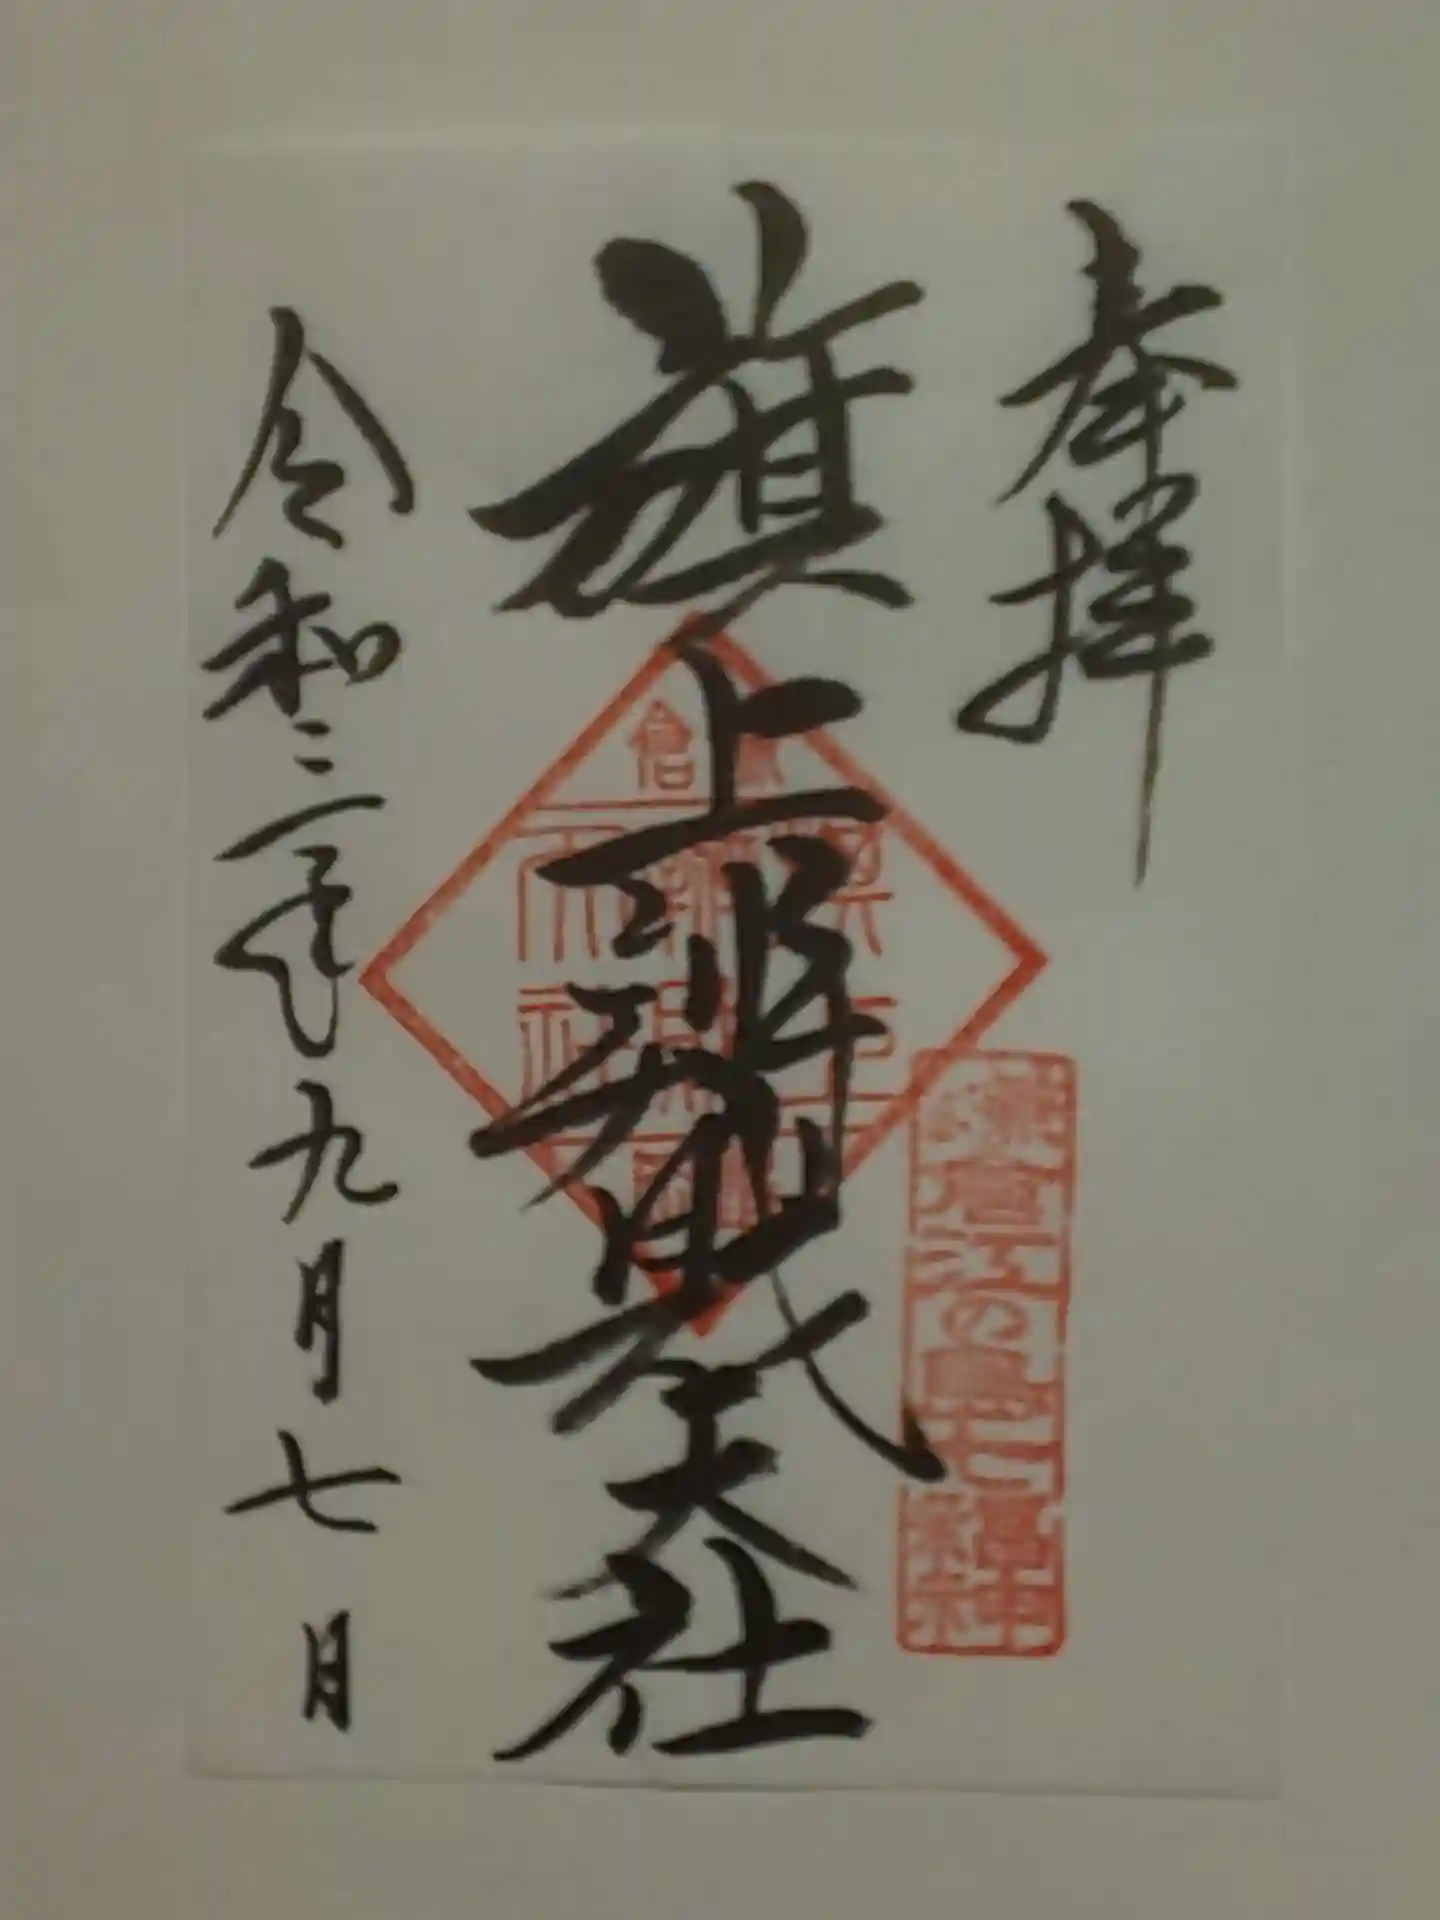 奉拝
旗上辨財天社
令和三年九月七日
鎌倉江の島七福神